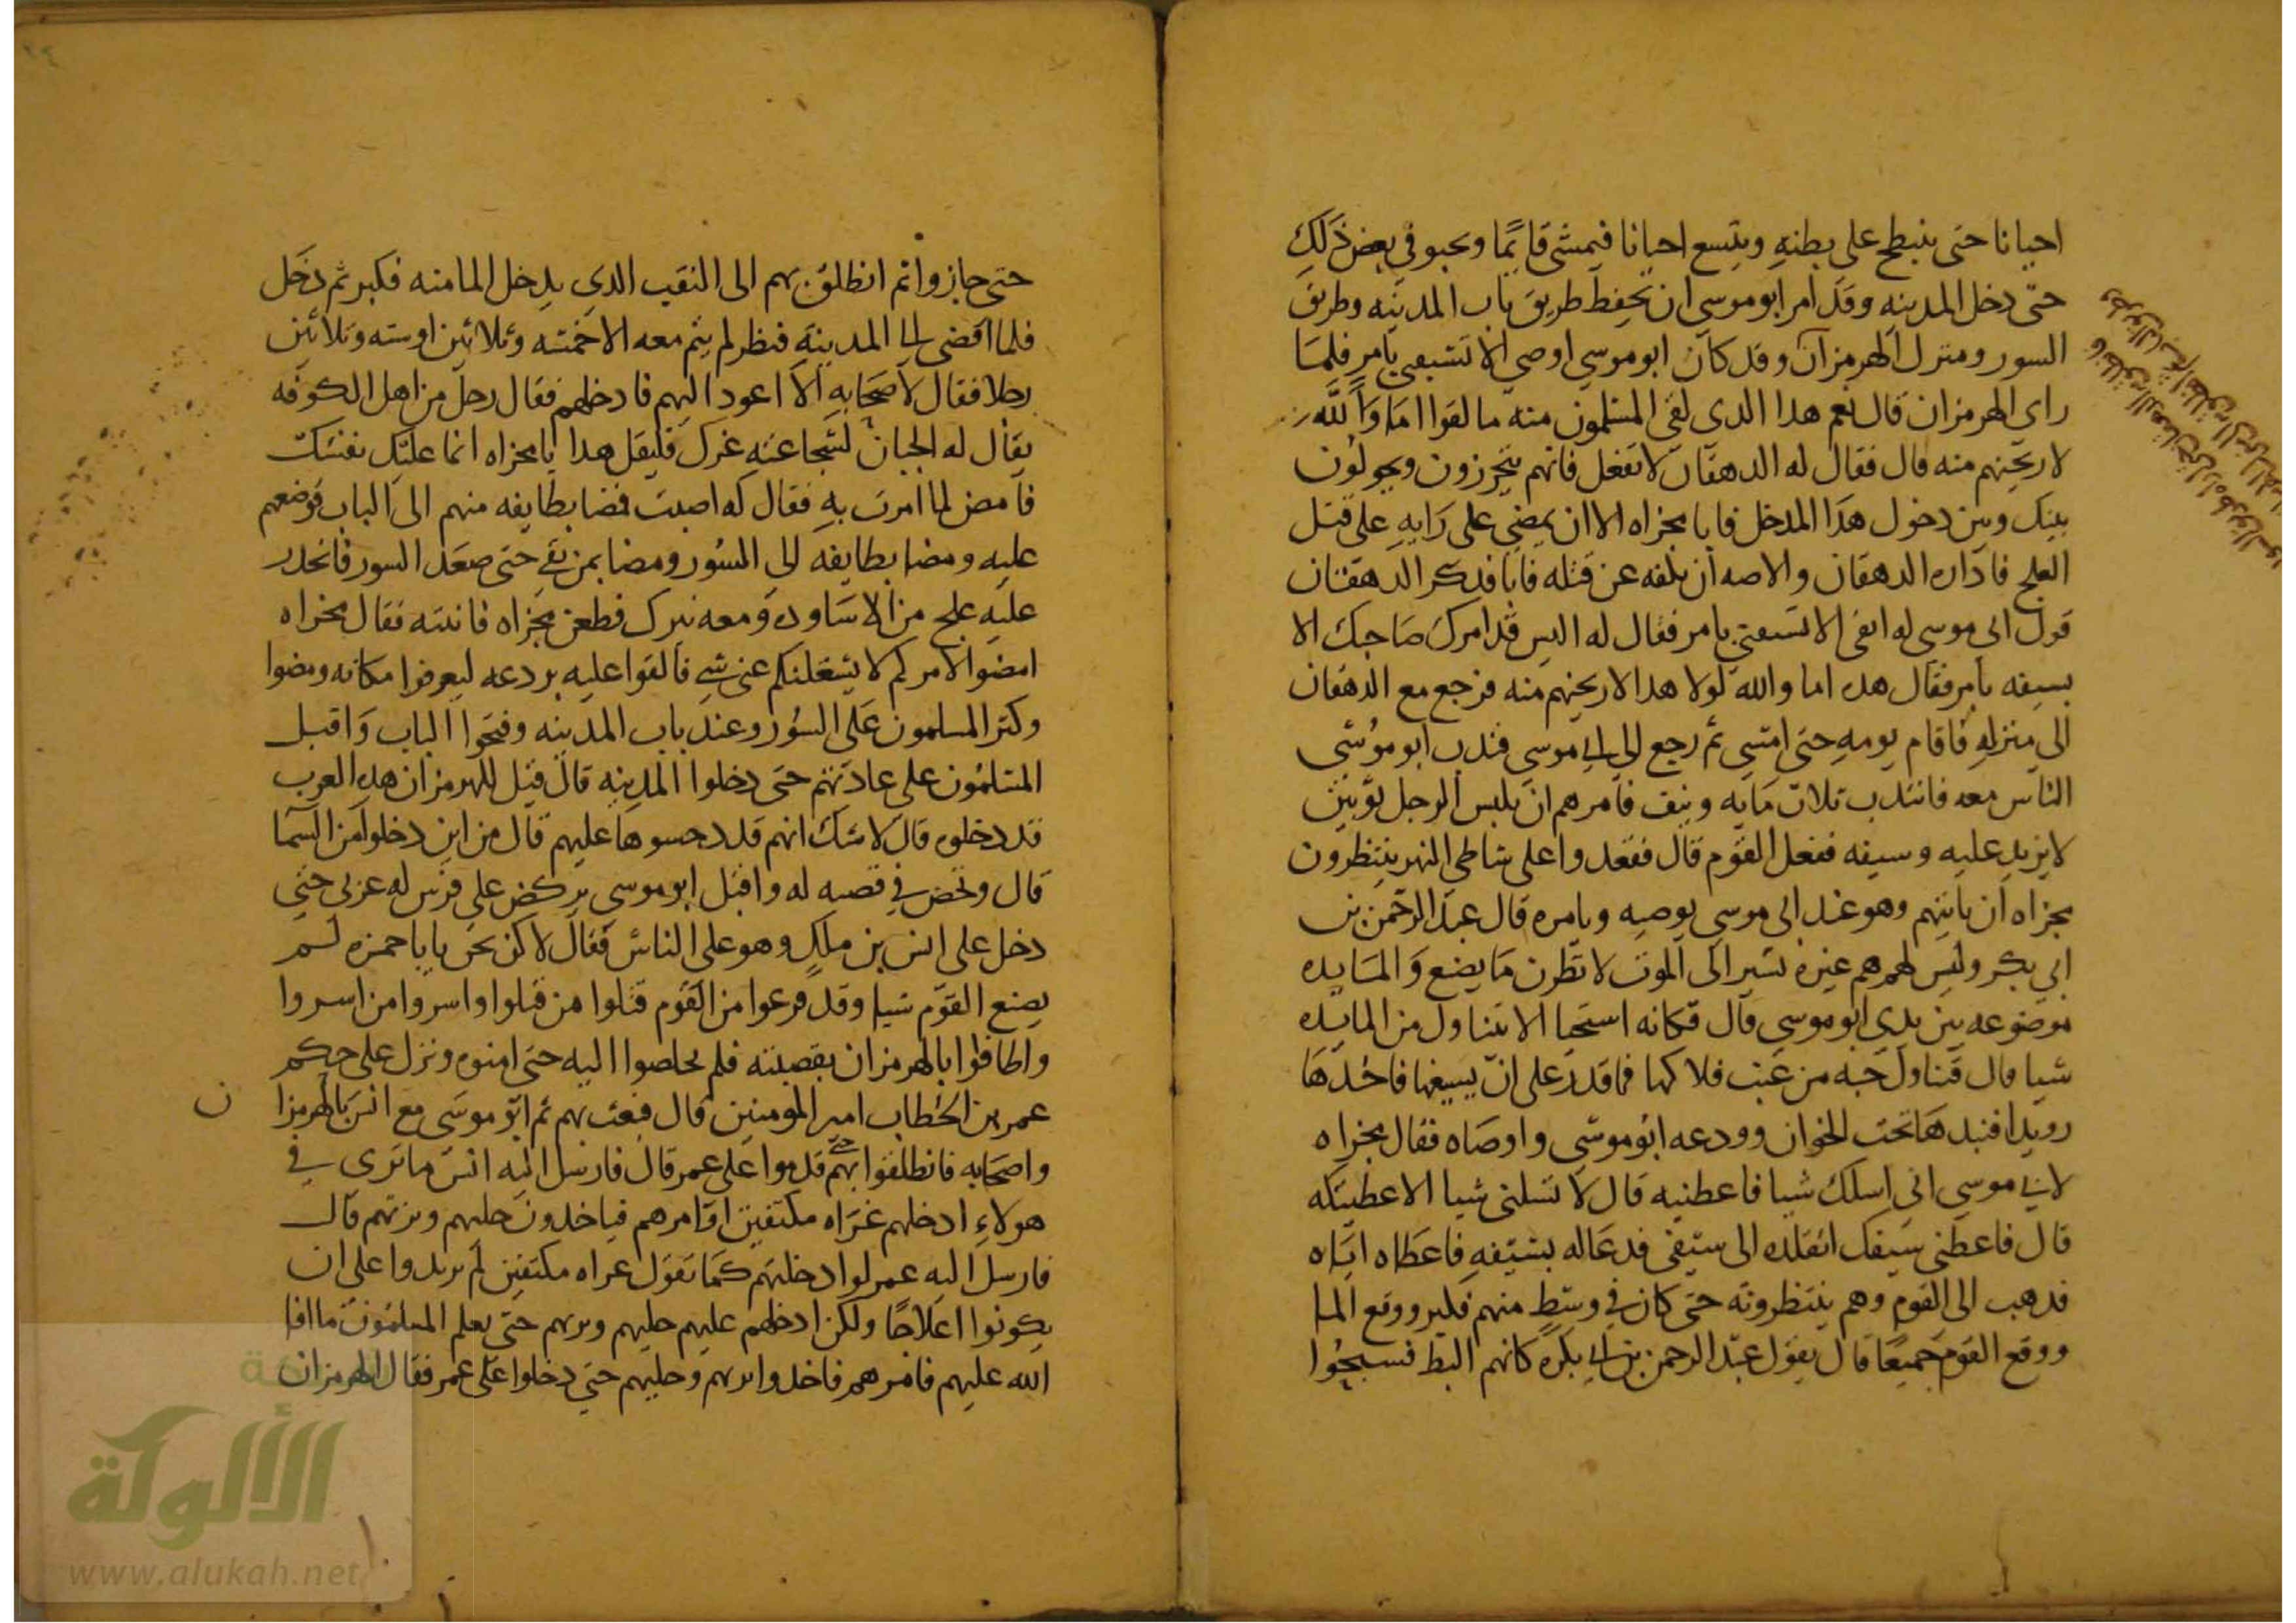 احيانا حتى ينبطح على بطنه ويتسع احيانا فيمشى قايمًا ويحبو في بعض ذلك
حتى دخل المدينه وقد امر ابو موسى ان يحفظ طريق باب المدينه وطريق
السور ومنزل الهرمزان وقد كان ابو موسى اوصى الا تسبقنى بامر فلما
راى الهرمزان قال نعم هدا الدى لقى المسلمون منه ما لقوا اما والله
لاريحنهم منه قال فقال له الدهقان لا تفعل فانهم يتحرزون ويحولون
بينك وبين دخول هدا المدخل فابا مجزاه الا ان يمضى على رايه على قتل
العلج فاداره الدهقان والاصه ان يلفه عن قتله فابا فدكر الدهقان
قول ابى موسى له اتقى الا تسبقنى بامر فقال له اليس قد امرك صاحبك الا
بسبقه بامر فقال هده اما والله لولا هدا لاريحنهم منه فرجع مع الدهقان
الى منزله فاقام يومه حتى امسى ثم رجع الى ابى موسى فندب ابو موسى
الناس معه فانتدب ثلاث مايه ونيف فامرهم ان يلبس الرجل ثوبين
لا يزيد عليه وسيفه ففعل القوم قال فقعدوا على شاطى النهر ينتظرون
مجزاه ان ياتيهم وهو عند ابى موسى يوصيه ويامره قال عبد الرحمن بن
ابى بكر وليس لهم هم غيره نشير الى الموت لانظرن ما يصنع والمايده
موضوعه بين يدى ابو موسى قال فكانه استحيا الا يتناول من المايده
شيا قال فتناول حبه من عنب فلاكها فما قدر على ان يسيغها فاخدها
رويدا فنبدها تحت الخوان وودعه ابو موسى واوصاه فقال مجزاه
لابى موسى انى اسلك شيا فاعطنيه قال لا تسلنى شيا الا اعطيتكه
قال فاعطنى سيفك اتقلده الى سيفى فدعا له بسيفه فاعطاه اياه
فدهب الى القوم وهم ينتظرونه حتى كان في وسط منهم فكبر ووقع الما
ووقع القوم جميعًا قال يقول عبد الرحمن بن ابى بكره كانهم البط فسبحوا
حتى جازوا ثم انطلق بهم الى النقب الدى يدخل الما منه فكبر ثم دخل
فلما افضى الى المدينه فنظر لم يتم معه الا خمسه وثلاثين او سته وثلاثين
رجلا فقال لاصحابه الا اعود اليهم فادخلهم فقال رجل من اهل الكوفه
يقال له الجبان لشجاعته غيرك فليقل هدا يا مجزاه انما عليك نفسك
فامض لما امرت به فقال له اصبت فمضا بطايفه منهم الى الباب فوضعهم
عليه ومضا بطايفه الى السور ومضا بمن بقى حتى صعد السور فانحدر
عليه علج من الاساوره ومعه نيزك فطعن مجزاه فاثبته فقال مجزاه
امضوا لامركم لا يشغلنكم عنى شى فالقوا عليه بردعه ليعرفوا مكانه ومضوا
وكبر المسلمون على السور وعند باب المدينه وفتحوا الباب واقبل
المسلمون على عادتهم حتى دخلوا المدينه قال قيل للهرمزان هده العرب
قد دخلوه قال لا شك انهم قد دحسوها عليهم قال من اين دخلوا امن السما
قال وتحصن في قصبه له واقبل ابو موسى يركض على فرس له عربى حتى
دخل على انس بن ملك وهو على الناس فقال لا كن نحن يابا حمزه لم
يصنع القوم شيا وقد فرغوا من القوم قتلوا من قتلوا واسروا من اسروا
واطافوا بالهرمزان بقصبته فلم يخلصوا اليه حتى امنوه ونزل على حكم
عمر بن الخطاب امير المومنين قال فبعث بهم ثم ابو موسى مع انس بالهرمزا ن
واصحابه فانطلقوا بهم حتى قدموا على عمر قال فارسل اليه انس ما ترى في
هولاءِ ادخلهم عراه مكتفين او امرهم فياخدون حليهم وبزتهم قال
فارسل اليه عمر لو ادخلتهم كما تقول عراه مكتفين لم يزيدوا على ان
يكونوا اعلاجًا ولكن ادخلهم عليهم حليهم وبزتهم حتى يعلم المسلمون ما افا
الله عليهم فامرهم فاخدوا بزتهم وحليهم حتى دخلوا على عمر فقال الهرمزان
الألوكة
www.alukah.net